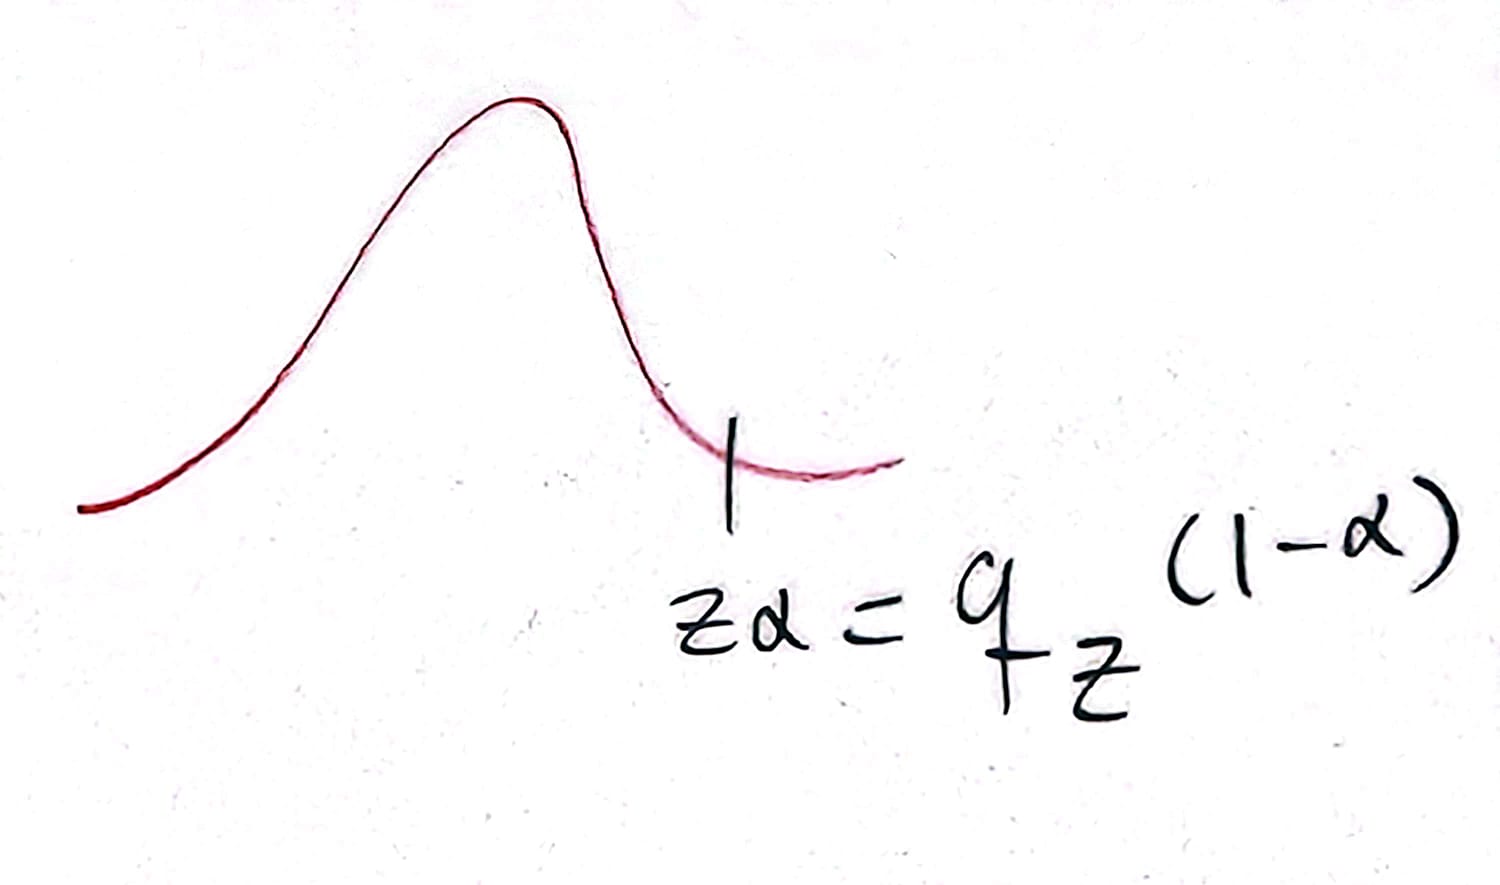 zα = q z (1-α)